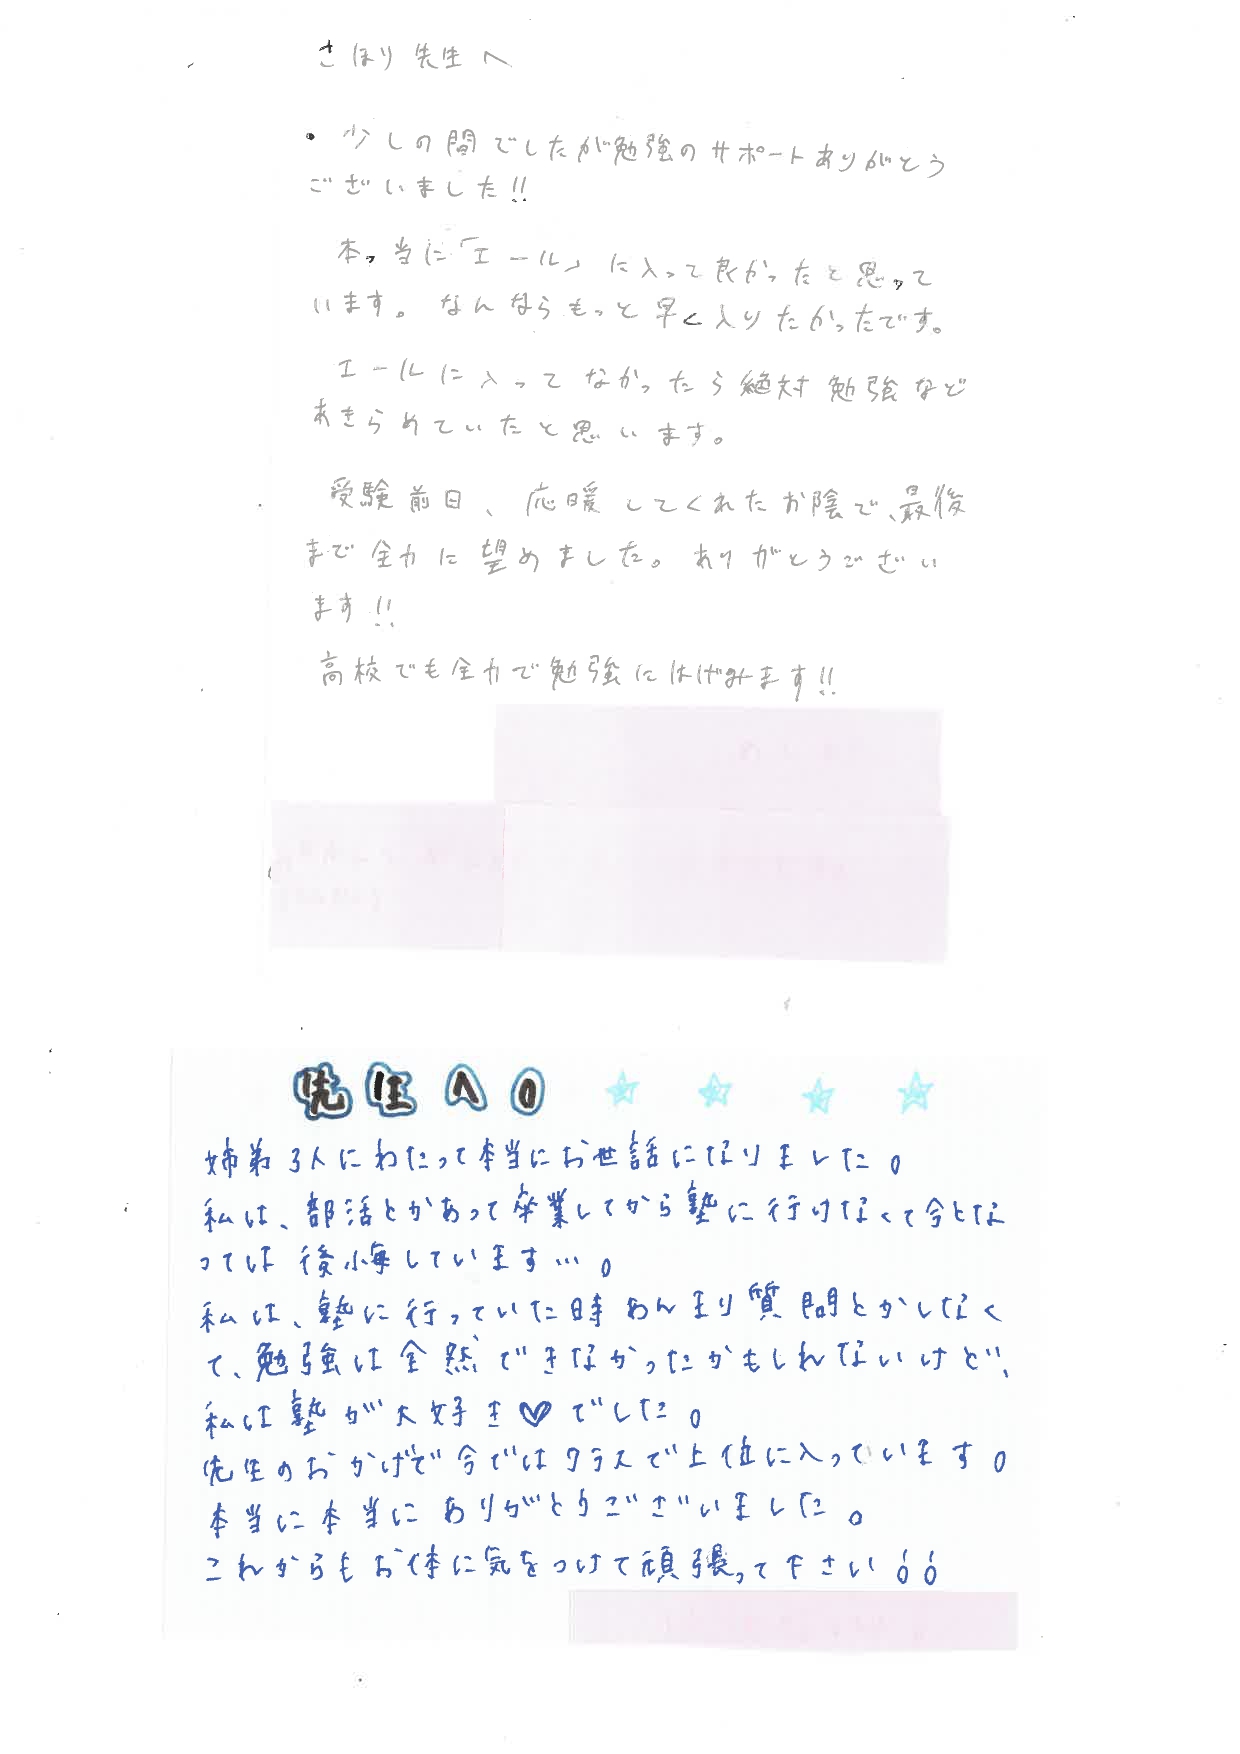 さほり先生へ
・少しの間でしたが勉強のサポートありがとう
ございました!!
本っ当に「エール」に入って良かったと思って
います。なんならもっと早く入りたかったです。
エールに入ってなかったら絶対勉強など
あきらめていたと思います。
受験前日、応暖してくれたお陰で、最後
まで全力に望めました。ありがとうござい
ます!!
高校でも全力で勉強にはげみます!!
先生へ
姉弟3人にわたって本当にお世話になりました。
私は、部活とかあって卒業してから塾に行けなくて今とな
っては後悔しています…。
私は、塾に行っていた時あんまり質問とかしなく
て、勉強は全然できなかったかもしれないけど、
私は塾が大好き♡でした。
先生のおかげで今ではクラスで上位に入っています。
本当に本当にありがとうございました。
これからもお体に気をつけて頑張って下さい!!